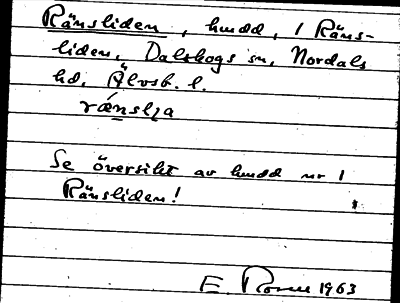 Ränsliden, hmdd, 1 Räns-
liden, Dalskogs sn, Nordals
hd, Älvsb. l.
rǽnslɩa
Se översikt av hmdd nr 1
Ränsliden!
E 1963